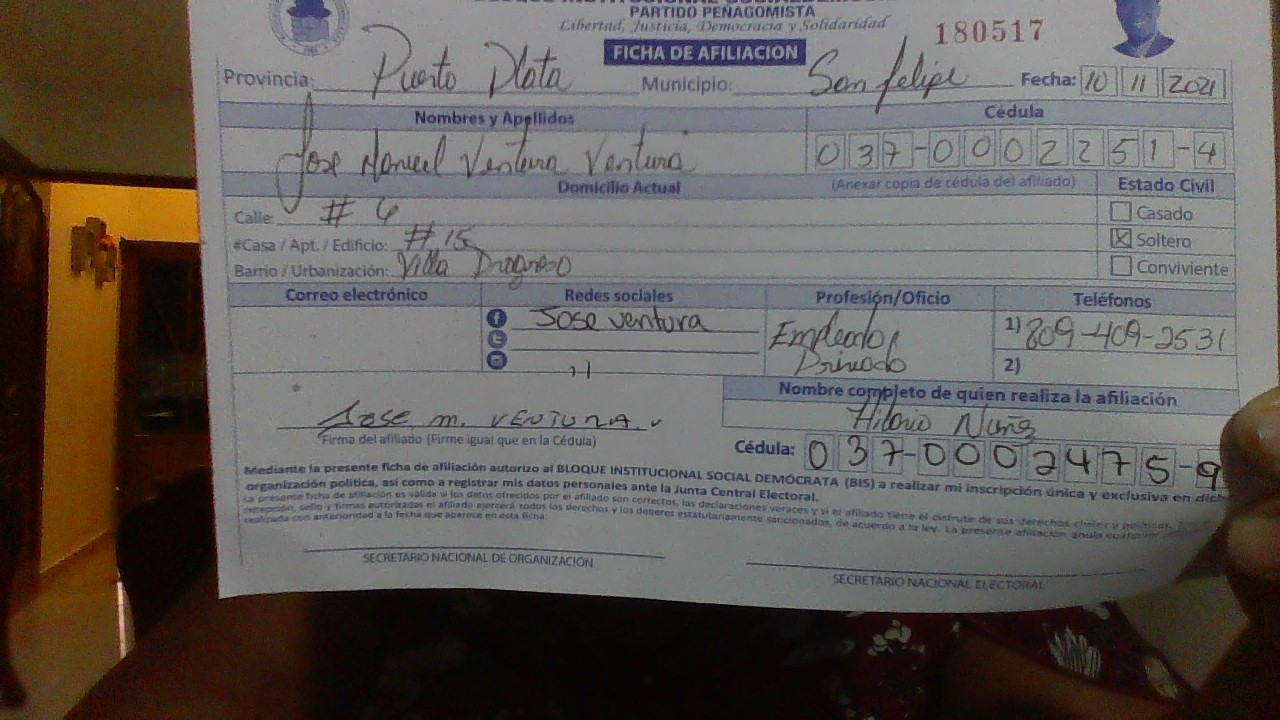 PARTIDO PEÑAGOMISTA
Libertad, Justicia, Democracia y Solidaridad
180517
FICHA DE AFILIACION
Provincia: Puerto Plata Municipio: San felipe Fecha: 10 11 2021
Nombres y Apellidos Cédula
Jose Manuel Ventura Ventura 037-0002251-4
Domicilio Actual (Anexar copia de cédula del afiliado) Estado Civil
Calle: # 6 Casado
#Casa / Apt. / Edificio: # 15 Soltero
Barrio / Urbanización: Villa Progreso Conviviente
Correo electrónico Redes sociales Profesión/Oficio Teléfonos
Jose ventura Empleado Privado 1) 809-409-2531
2)
Nombre completo de quien realiza la afiliación
Jose m. VENTURA. v Hilario Nuñez
Firma del afiliado (Firme igual que en la Cédula) Cédula: 037-0002475-9
Mediante la presente ficha de afiliación autorizo al BLOQUE INSTITUCIONAL SOCIAL DEMÓCRATA (BIS) a realizar mi inscripción única y exclusiva en dich
organización política, así como a registrar mis datos personales ante la Junta Central Electoral.
La presente ficha de afiliación es válida si los datos ofrecidos por el afiliado son correctos, las declaraciones veraces y si el afiliado tiene el disfrute de sus derechos civiles y políticos.
recepción, sello y firmas autorizadas el afiliado ejercerá todos los derechos y los deberes estatutariamente sancionados, de acuerdo a la ley. La presente afiliación anula cualquier
realizada con anterioridad a la fecha que aparece en esta ficha.
SECRETARIO NACIONAL DE ORGANIZACIÓN
SECRETARIO NACIONAL ELECTORAL